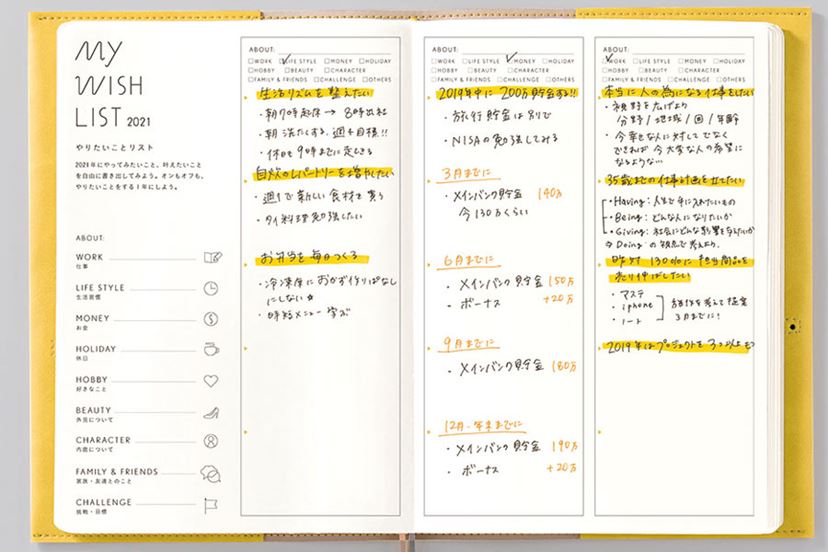 MY
WISH
LIST 2021
やりたいことリスト
2021年にやってみたいこと、叶えたいこと
を自由に書き出してみよう。オンもオフも、
やりたいことをする1年にしよう。
ABOUT:
WORK
仕事
LIFE STYLE
生活習慣
MONEY
お金
HOLIDAY
休日
HOBBY
好きなこと
BEAUTY
外見について
CHARACTER
内面について
FAMILY & FRIENDS
家族・友達とのこと
CHALLENGE
挑戦・目標
ABOUT:
□WORK □LIFE STYLE □MONEY □HOLIDAY
□HOBBY □BEAUTY □CHARACTER
□FAMILY & FRIENDS □CHALLENGE □OTHERS
生活リズムを整えたい
・朝7時起床 → 8時出社
・朝活たする、週4目標!!
・休日も9時までに起きる
自炊のレパートリーを増やしたい
・週1で新しい食材を買う
・タイ料理勉強したい
お弁当を毎日つくる
・冷凍庫におかず作りぱなし
にしない☆
・時短メニュー学ぶ
ABOUT:
□WORK □LIFE STYLE □MONEY □HOLIDAY
□HOBBY □BEAUTY □CHARACTER
□FAMILY & FRIENDS □CHALLENGE □OTHERS
2019年中に200万貯金する!!
・旅行貯金は別で
・NISAの勉強してみる
3月までに
・メインバンク貯金 140万
今130万くらい
6月までに
・メインバンク貯金 150万
・ボーナス +20万
9月までに
・メインバンク貯金 180万
12月・年末までに
・メインバンク貯金 190万
・ボーナス +20万
ABOUT:
□WORK □LIFE STYLE □MONEY □HOLIDAY
□HOBBY □BEAUTY □CHARACTER
□FAMILY & FRIENDS □CHALLENGE □OTHERS
本当に人の為になる仕事をしたい
・視野を広げより
分野/地域/国/年齢
・今幸せな人に対してでなく
できれば今大変な人の希望に
なるような…
35歳までの仕事計画を立てたい
・Having:人生で手に入れたいもの
・Being:どんな人になりたいか
・Giving:社会にどんな影響を与えたいか
→Doingの観点で考えよう。
昨対130%に担当商品を
売り伸ばしたい
・マステ
・iphone
・ノート
3月までに!
2019年はプロジェクトを3つ以上もつ